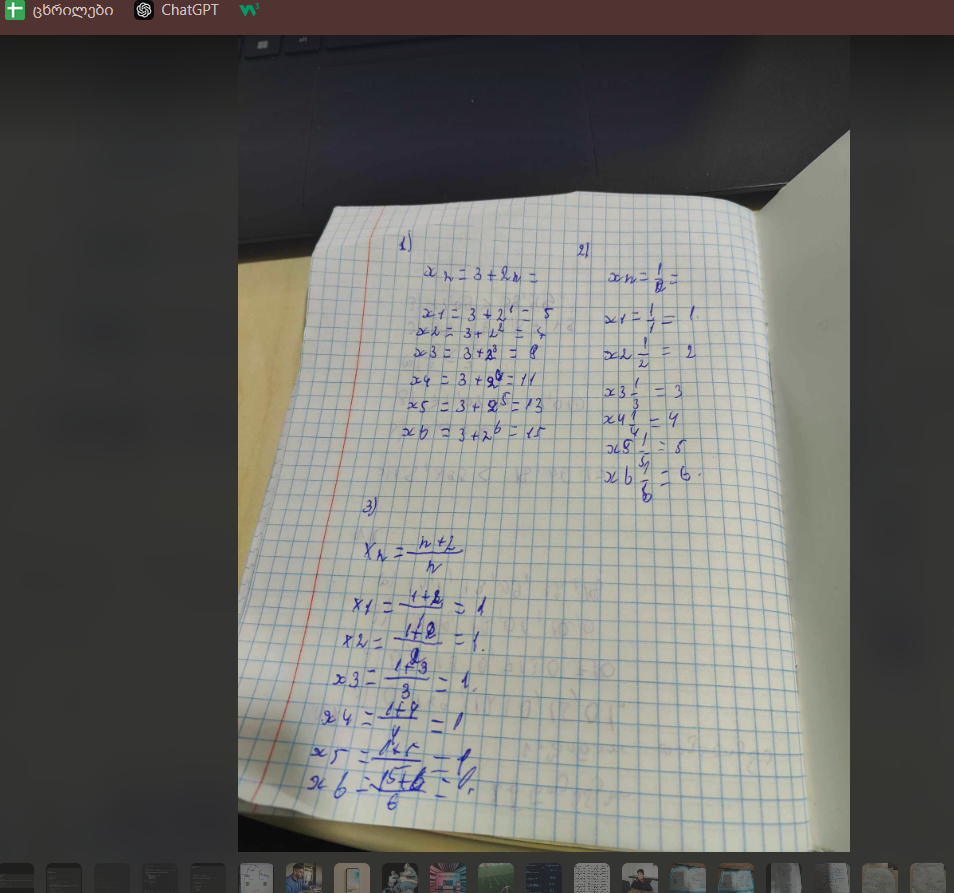 ცხრილები ChatGPT
1)
xn = 3 + 2n =
x1 = 3 + 2^1 = 5
x2 = 3 + 2^2 = 4
x3 = 3 + 2^3 = 8
x4 = 3 + 2^4 = 11
x5 = 3 + 2^5 = 13
x6 = 3 + 2^6 = 15
2)
xn = 1/n =
x1 = 1/1 = 1.
x2 1/2 = 2
x3 1/3 = 3
x4 1/4 = 4
x5 1/5 = 5
x6 1/6 = 6.
3)
xn = n+2/n
x1 = 1+2/1 = 1
x2 = 1+2/2 = 1.
x3 = 1+3/3 = 1.
x4 = 1+4/4 = 1
x5 = 1+5/5 = 1